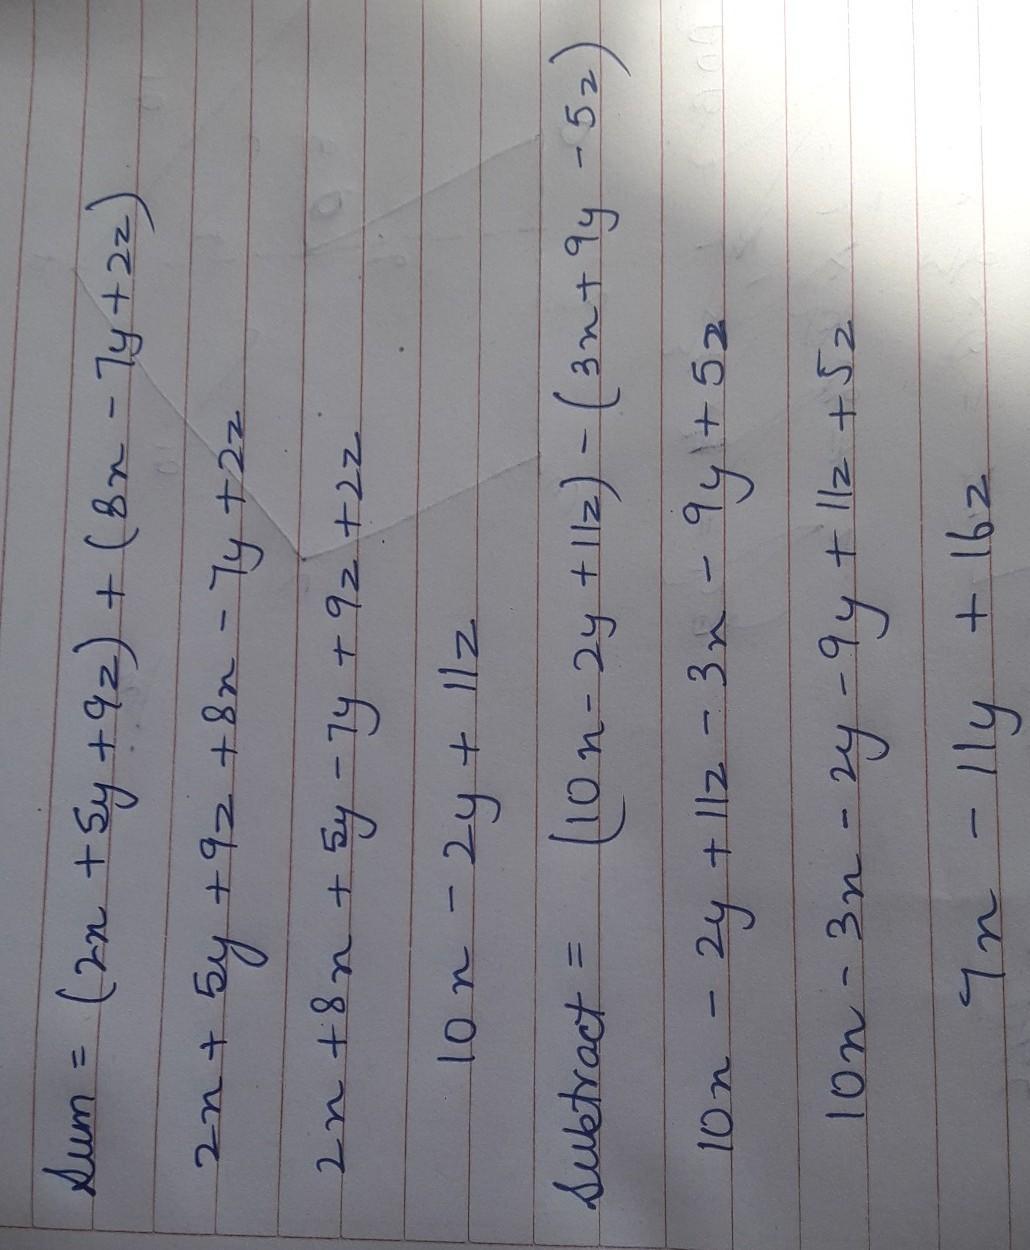 Sum = (2x + 5y + 9z) + (8x - 7y + 2z)
2x + 5y + 9z + 8x - 7y + 2z
2x + 8x + 5y - 7y + 9z + 2z
10x - 2y + 11z
Subtract = (10x - 2y + 11z) - (3x + 9y - 5z)
10x - 2y + 11z - 3x - 9y + 5z
10x - 3x - 2y - 9y + 11z + 5z
7x - 11y + 16z